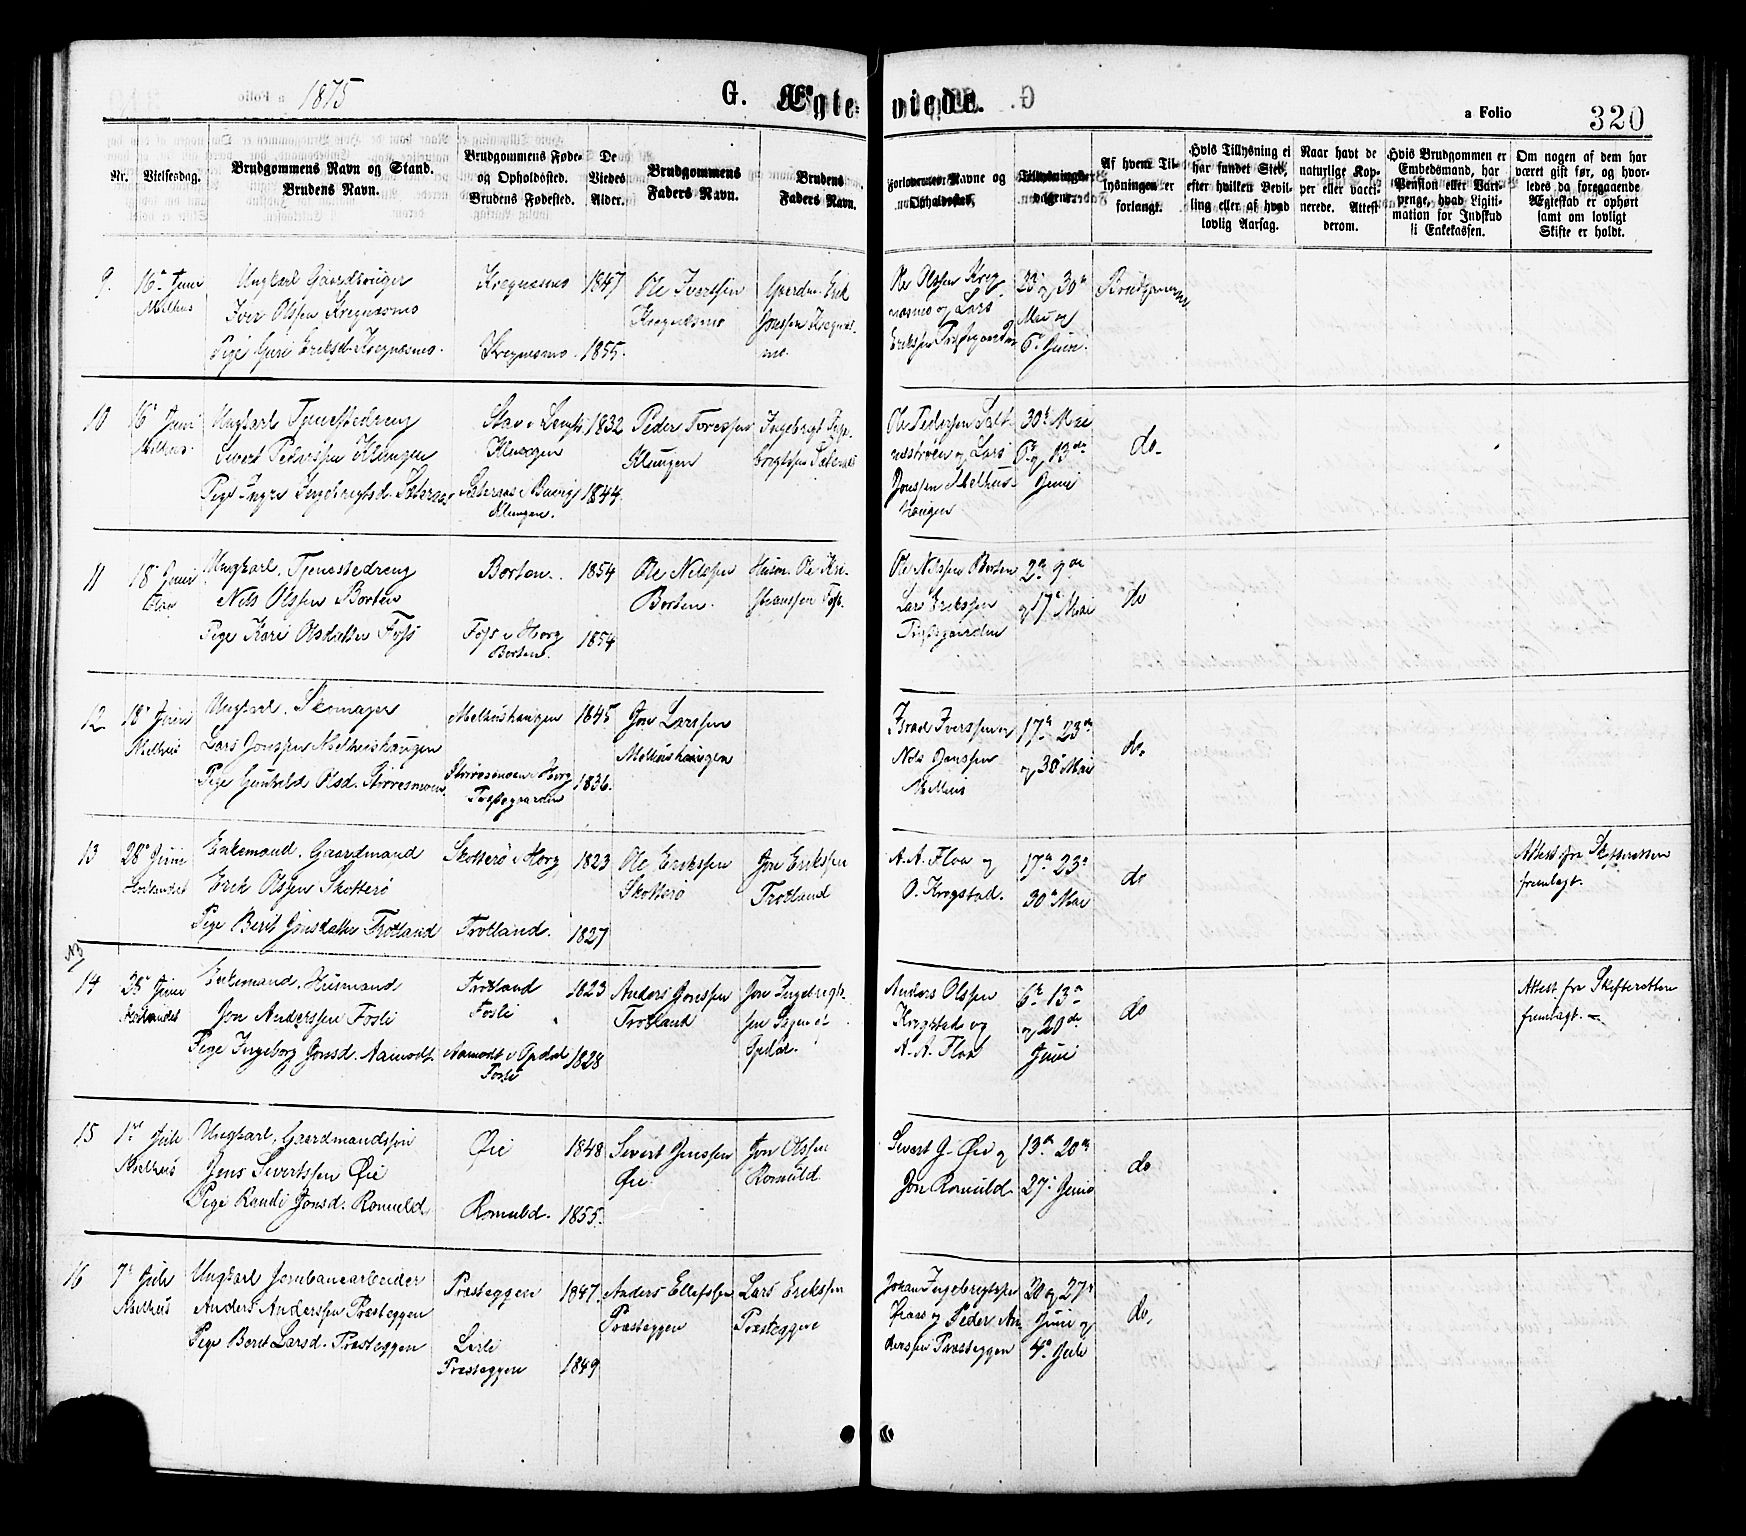 1875
G. Ægteviede.
a Folio 320
Nr.
Vielsesdag.
Brudgommens Navn og Stand.
Brudens Navn.
Brudgommens Føde-
og Opholdssted.
Brudens Fødested.
De
Viedes
Alder.
Brudgommens
Faders Navn.
Brudens
Faders Navn.
Forlovernes Navne og
Opholdssted.
Tillysnings-
dagene.
Af hvem Til-
lysningen er
forlangt.
Hvis Tillysning ei
har fundet Sted,
efter hvilken Bevil-
ling eller af hvad
lovlig Aarsag.
Naar havt de
naturlige Kop-
per eller vacci-
nerede. Attest
derom.
Hvis Brudgommen er
Embedsmand, har
Pension eller Vart-
penge, hvad Ligiti-
mation for Indskud
i Enkekassen.
Om nogen af dem har
været gift før, og hvor-
ledes da foregaaende
Ægteskab er ophørt
samt om lovligt
Skifte er holdt.
9. 16de Juni
Melhus
Ungkarl Gaardbruger
Iver Olssen Kregnæsmo
Pige Guri Eriksd. Kregnæsmo.
Kregnæsmo
Kregnæsmo.
1847
1855.
Ole Ivertsen
Kregnæsmo
Gaardm. Erik
Jonssen Kregnæs-
mo.
Ole Olssen Kreg
næsmo og Lars
Erikssen Prestgaarden
23 og 30te
Mai og
6te Juni.
Brudgommen
10 16de Juni
Melhus
Ungkarl Tjenestedreng
Sivert Pederssen Klungen
Pige Ingri Ingebrigtsd. Sæteraas
Klungen
Sæteraas i Buvig
Klungen.
1832
1844.
Peder Toressen
Klungen
Ingebrigt Inge-
brigtssen Sæteraas
Ole Pederssen
og Lars
Jonssen Melhus-
haugen
30te Mai
6te og 13de
Juni
do.
11 18de Juni
Flaa
Ungkarl. Tjenestedreng
Nils Olssen Borten
Pige Kari Olsdatter Foss
Borten.
Foss i Horg
Borten.
1854
1854
Ole Nilssen
Borten.
Husm. Ole Kri-
stianssen Foss.
Ole Nilssen Borten
Lars Erikssen
Prestgaarden
2den 9de
og 17de Mai
do
12 18de Juni
Melhus
Ungkarl. Skomager
Lars Jonssen Melhushaugen
Pige Gunhild Olsd. Størresmoen
Melhushaugen
Størresmoen i Horg
Prestegaarden
1845
1836.
Jon Larssen
Melhushaugen
Iverssen og
Nils Jonssen
Melhus
17de 23de
og 30te Mai
do.
13 28de Juni
Hølandet
Enkemand. Gaardmand
Erik Olssen Skotterø
Pige Berit Jonsdatter Trotland
Skotterø i Horg
Trotland.
1823
1827
Ole Erikssen
Skotterø
Jon Erikssen
Trotland
A. A. Flaa og
O. Krogstad.
17de 23de
30te Mai
do
Attest fra Skifteretten
fremlagt.
14 28de Juni
Hølandet
Enkemand. Husmand
Jon Anderssen Fosli
Pige Ingeborg Jonsd. Aamodt.
Trotland
Fosli
Aamodt i Opdal
Fosli
1823
1828
Anders Jonssen
Trotland
Jon Ingebrigt-
sen
Opdal.
Anders Olssen
Krogstad og
A. A. Flaa
6te 13de
og 20de
Juni
do
Attest fra Skifteretten
fremlagt.
15 1ste Juli
Melhus
Ungkarl, Gaardmandssøn
Jens Sivertssen Øie
Pige Randi Jonsd. Romuld
Øie
Romuld.
1848
1855.
Sivert Jenssen
Øie
Jon Olssen
Romuld.
Sivert J. Øie og
Jon Romuld
13de 20de
27de Juni
do
16 7de Juli
Melhus
Ungkarl Jernbanearbeider
Anders Anderssen Præsteggen
Pige Beret Larsd. Præsteggen
Præsteggen
Lerli
Præsteggen
1847.
1849
Anders Ellefssen
Præsteggen
Lars Erikssen
Præsteggen
Johan Ingebrigtssen
og Peder An
derssen Præsteggen
20 og 27de
Juni og
4de Juli
do.